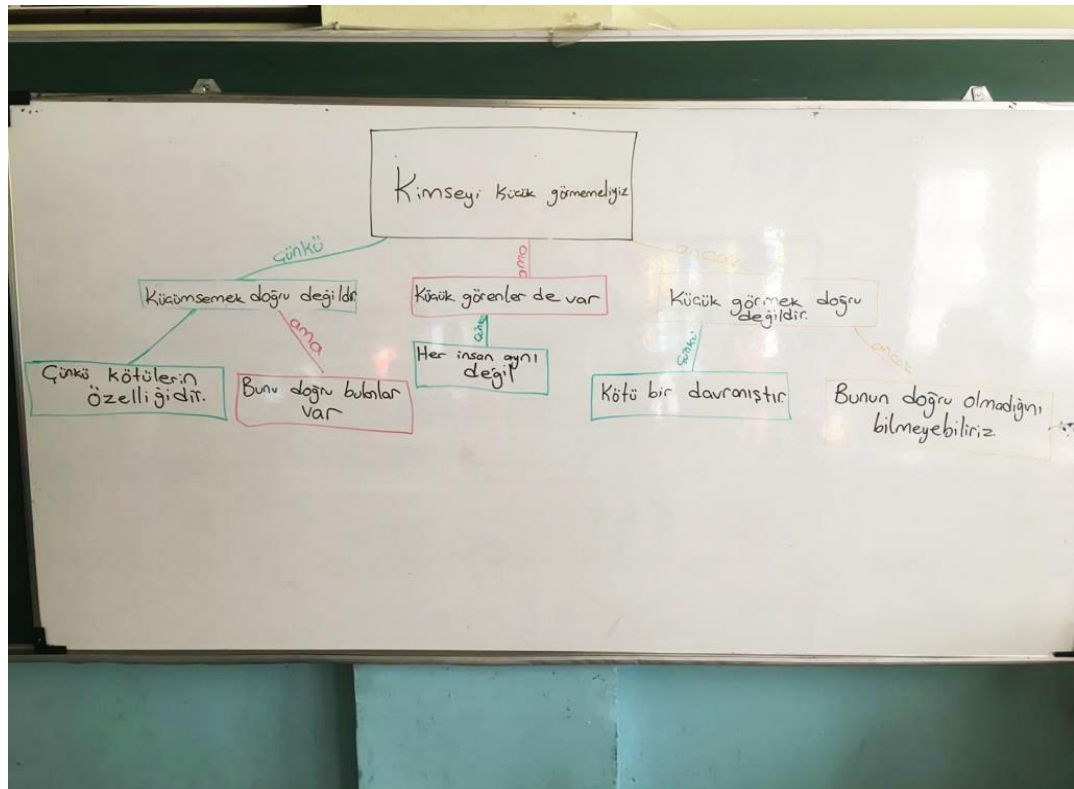 Kimseyi Küçük görmemeliyiz
Çünkü
ama
ancak
Küçümsemek doğru değildir
Küçük görenler de var
Küçük görmek doğru
değildir.
ama
çünkü
ancak
Çünkü kötülerin
Özelliğidir.
Bunu doğru bulanlar
var
Her insan aynı
değil
Kötü bir davranıştır
Bunun doğru olmadığını
bilmeyebiliriz